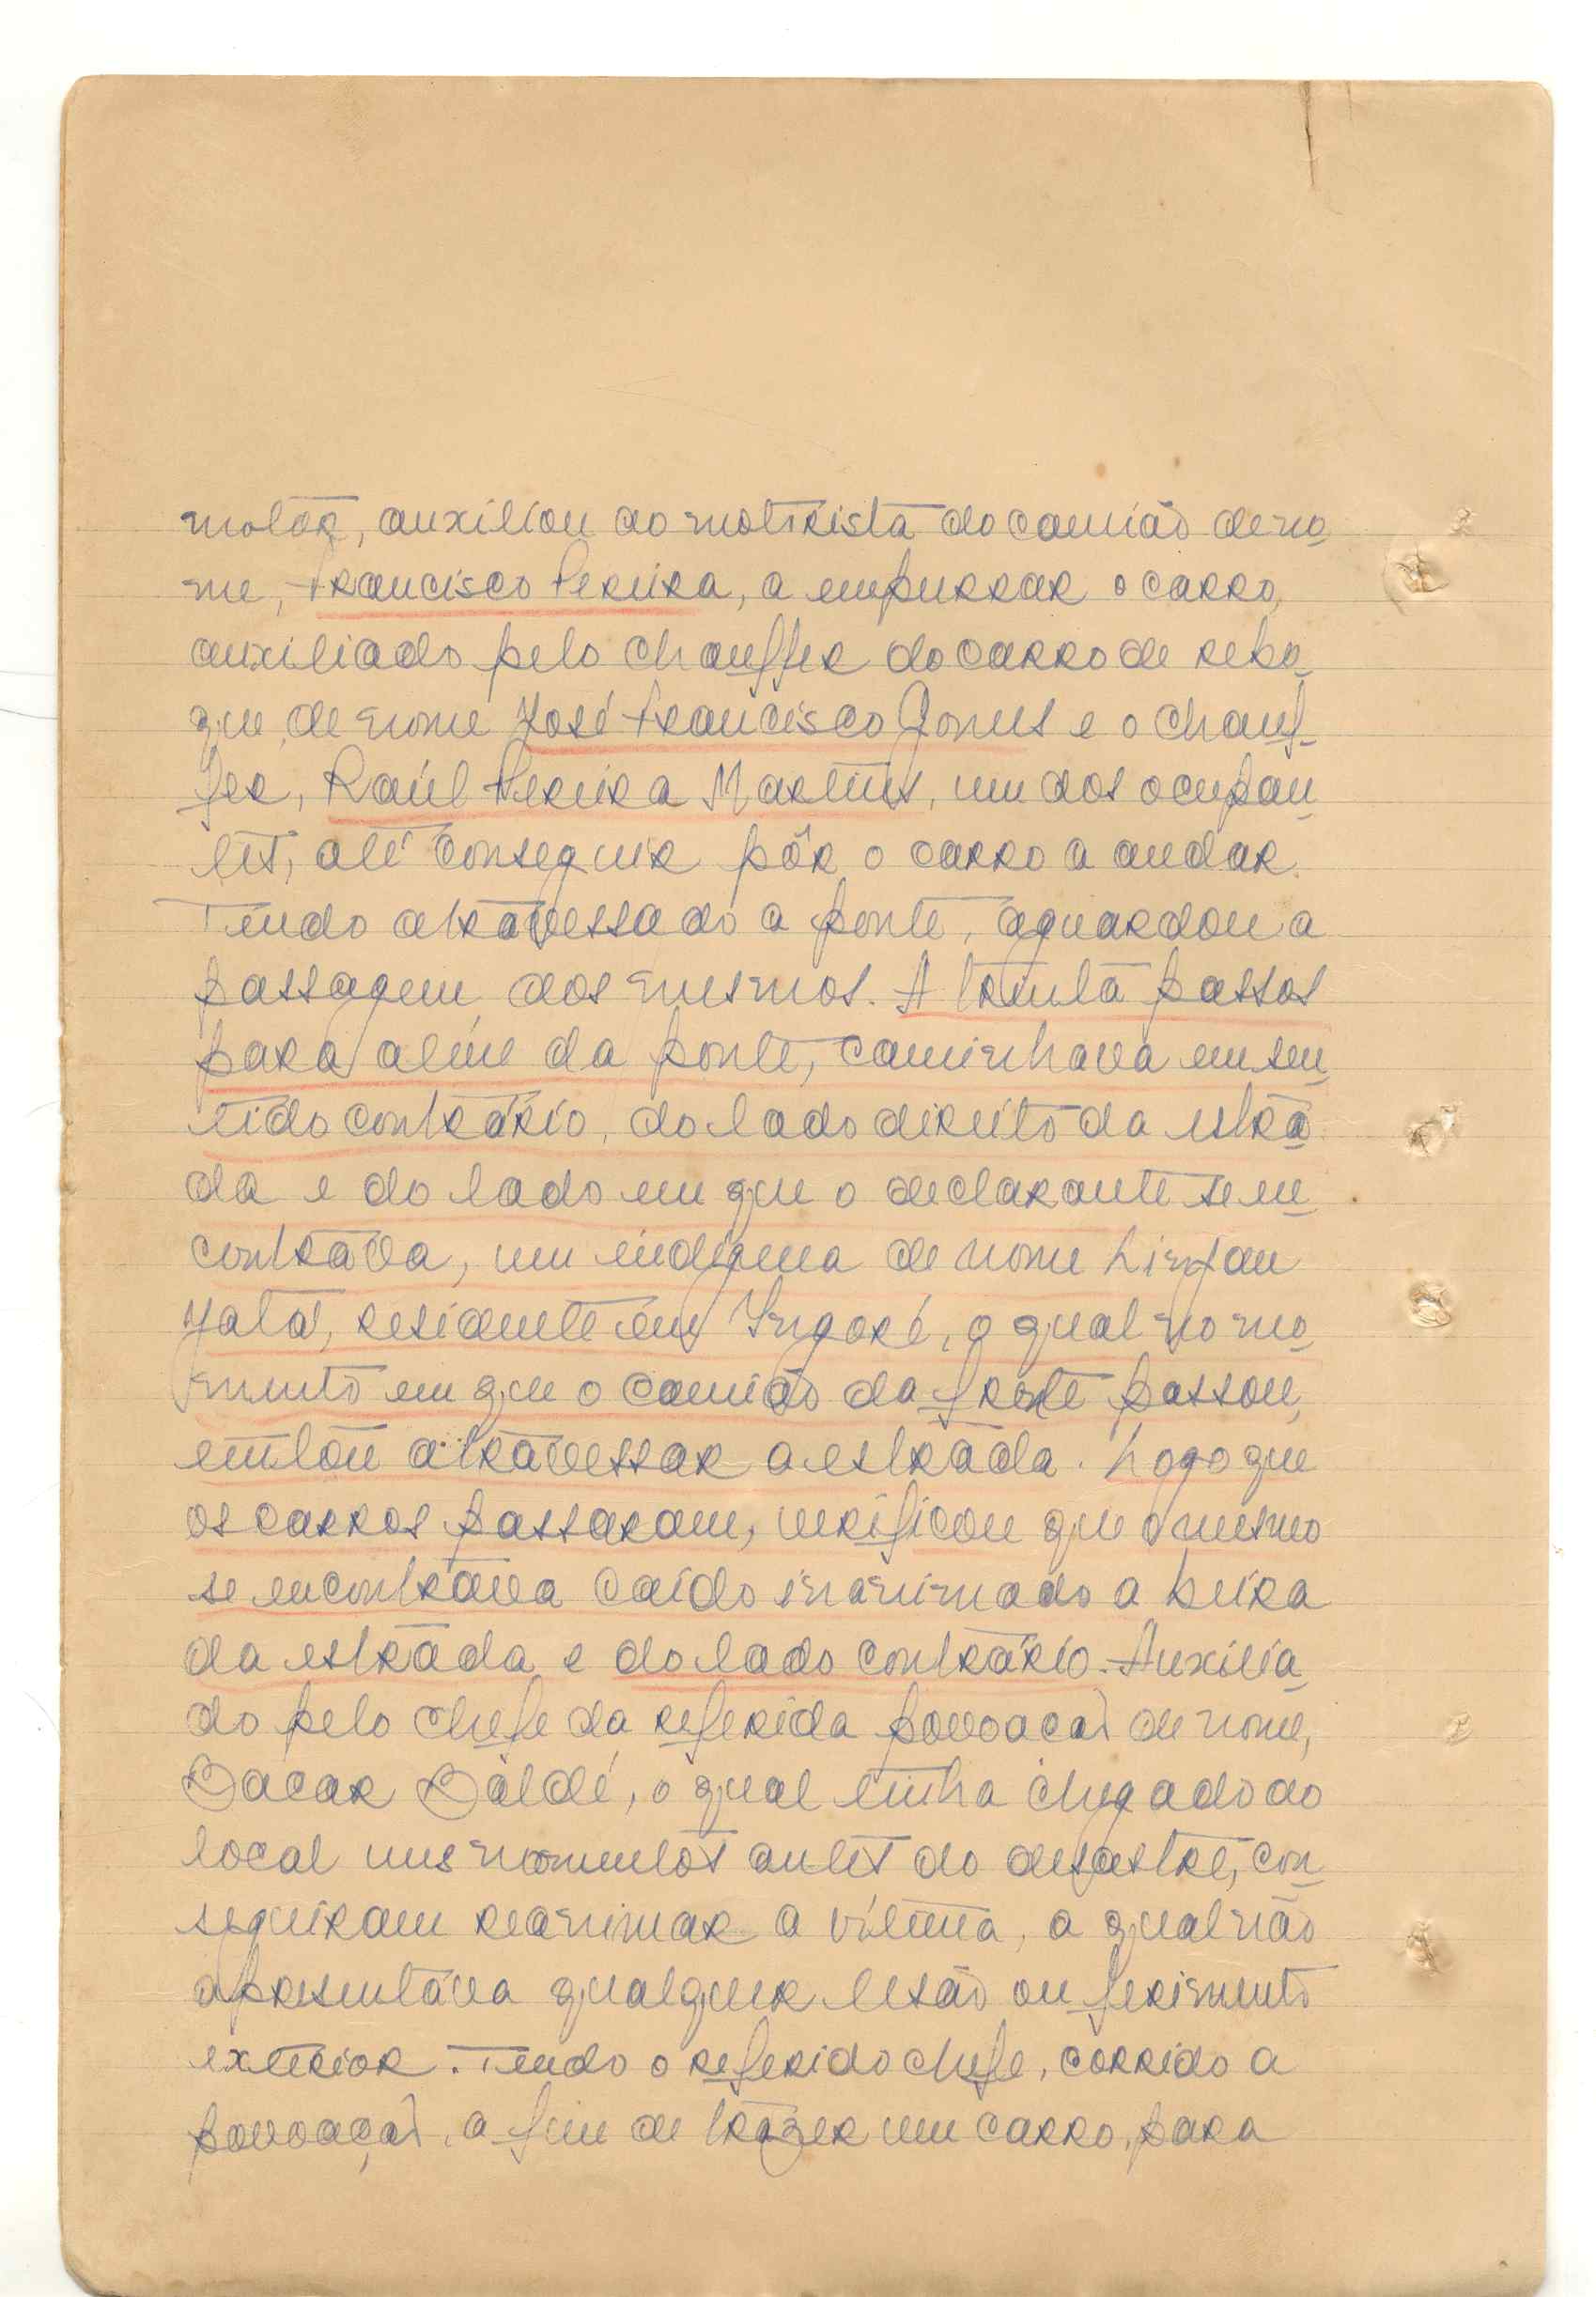 motôr, auxiliou ao motorista do camião de no-
me, Francisco Pereira, a empurrar o carro,
auxiliado pelo chauffer do carro de rebo-
que, de nome José Francisco Gomes e o chauf-
fer, Raúl Pereira Martins, um dos ocupan-
tes, até conseguir pôr o carro a andar.
Tendo atravessado a ponte, aguardou a
passagem dos mesmos. A trinta passos
para além da ponte, caminhava em sen-
tido contrário, do lado direito da estra-
da e do lado em que o declarante se en-
contrava, um indígena de nome
Jatá, residente em Ingoré, o qual no mo-
mento em que o camião da frente passou,
tentou atravessar a estrada. Logo que
os carros passaram, verificou que o mesmo
se encontrava caído inanimado a beira
da estrada e do lado contrário. Auxilia-
do pelo chefe da referida povoacão de nome,
Bacar Baldé, o qual tinha chegado ao
local uns momentos antes do desastre, con-
seguiram reanimar a vítima, a qual não
apresentáva qualquer lesão ou ferimento
exterior. Tendo o referido chefe, corrido a
povoação, a fim de trazer um carro, para